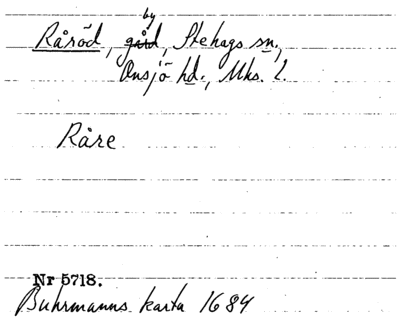 by
Råröd, gård, Stehags sn.,
Onsjö hd., Mks. l.
Råre
Nr 5718.
Buhrmanns karta 1684